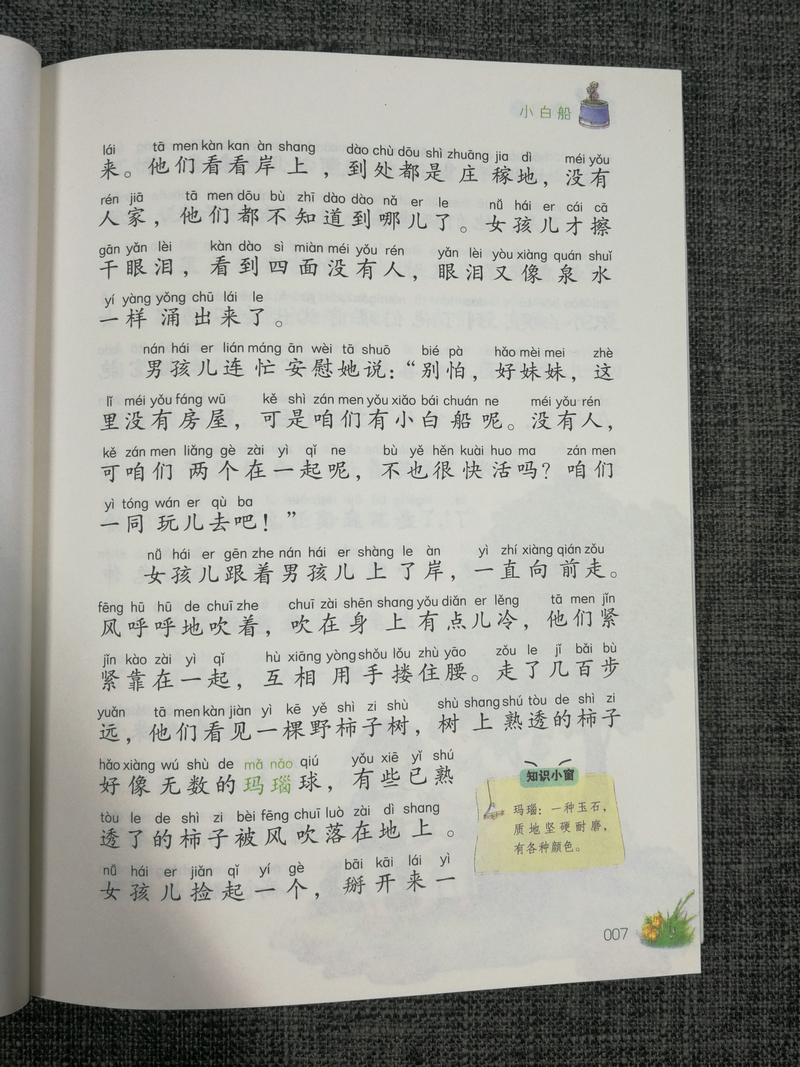 小白船
lái tā men kàn kan àn shang dào chù dōu shì zhuāng jia dì méi yǒu
来。他们看看岸上，到处都是庄稼地，没有
rén jiā tā men dōu bù zhī dào dào nǎ er le nǚ hái er cái cā
人家，他们都不知道到哪儿了。女孩儿才擦
gān yǎn lèi kàn dào sì miàn méi yǒu rén yǎn lèi yòu xiàng quán shuǐ
干眼泪，看到四面没有人，眼泪又像泉水
yí yàng yǒng chū lái le
一样涌出来了。
nán hái er lián máng ān wèi tā shuō bié pà hǎo mèi mei zhè
男孩儿连忙安慰她说：“别怕，好妹妹，这
lǐ méi yǒu fáng wū kě shì zán men yǒu xiǎo bái chuán ne méi yǒu rén
里没有房屋，可是咱们有小白船呢。没有人，
kě zán men liǎng gè zài yì qǐ ne bù yě hěn kuài huo ma zán men
可咱们两个在一起呢，不也很快活吗？咱们
yì tóng wán er qù ba
一同玩儿去吧！”
nǚ hái er gēn zhe nán hái er shàng le àn yì zhí xiàng qián zǒu
女孩儿跟着男孩儿上了岸，一直向前走。
fēng hū hū de chuī zhe chuī zài shēn shang yǒu diǎn er lěng tā men jǐn
风呼呼地吹着，吹在身上有点儿冷，他们紧
jǐn kào zài yì qǐ hù xiāng yòng shǒu lǒu zhù yāo zǒu le jǐ bǎi bù
紧靠在一起，互相用手搂住腰。走了几百步
yuǎn tā men kàn jiàn yì kē yě shì zi shù shù shang shú tòu de shì zi
远，他们看见一棵野柿子树，树上熟透的柿子
hǎo xiàng wú shù de mǎ nǎo qiú yǒu xiē yǐ shú
好像无数的玛瑙球，有些已熟
tòu le de shì zi bèi fēng chuī luò zài dì shang
透了的柿子被风吹落在地上。
nǚ hái er jiǎn qǐ yí gè bāi kāi lái yì
女孩儿捡起一个，掰开来一
知识小窗
玛瑙：一种玉石，
质地坚硬耐磨，
有各种颜色。
007